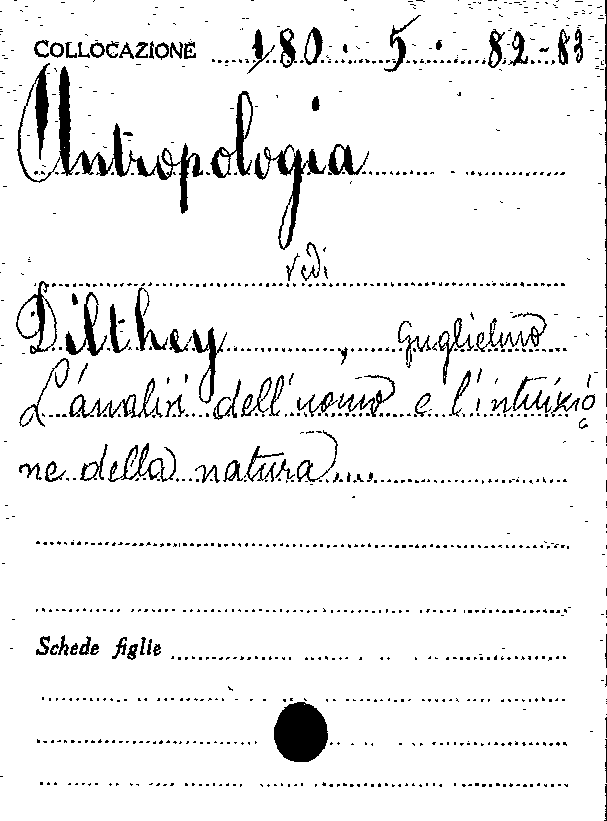 COLLOCAZIONE 180. 5. 82-83
Antropologia
vedi
Dilthey, Guglielmo
L'analisi dell'uomo e l'intuizio
ne della natura....
Schede figlie